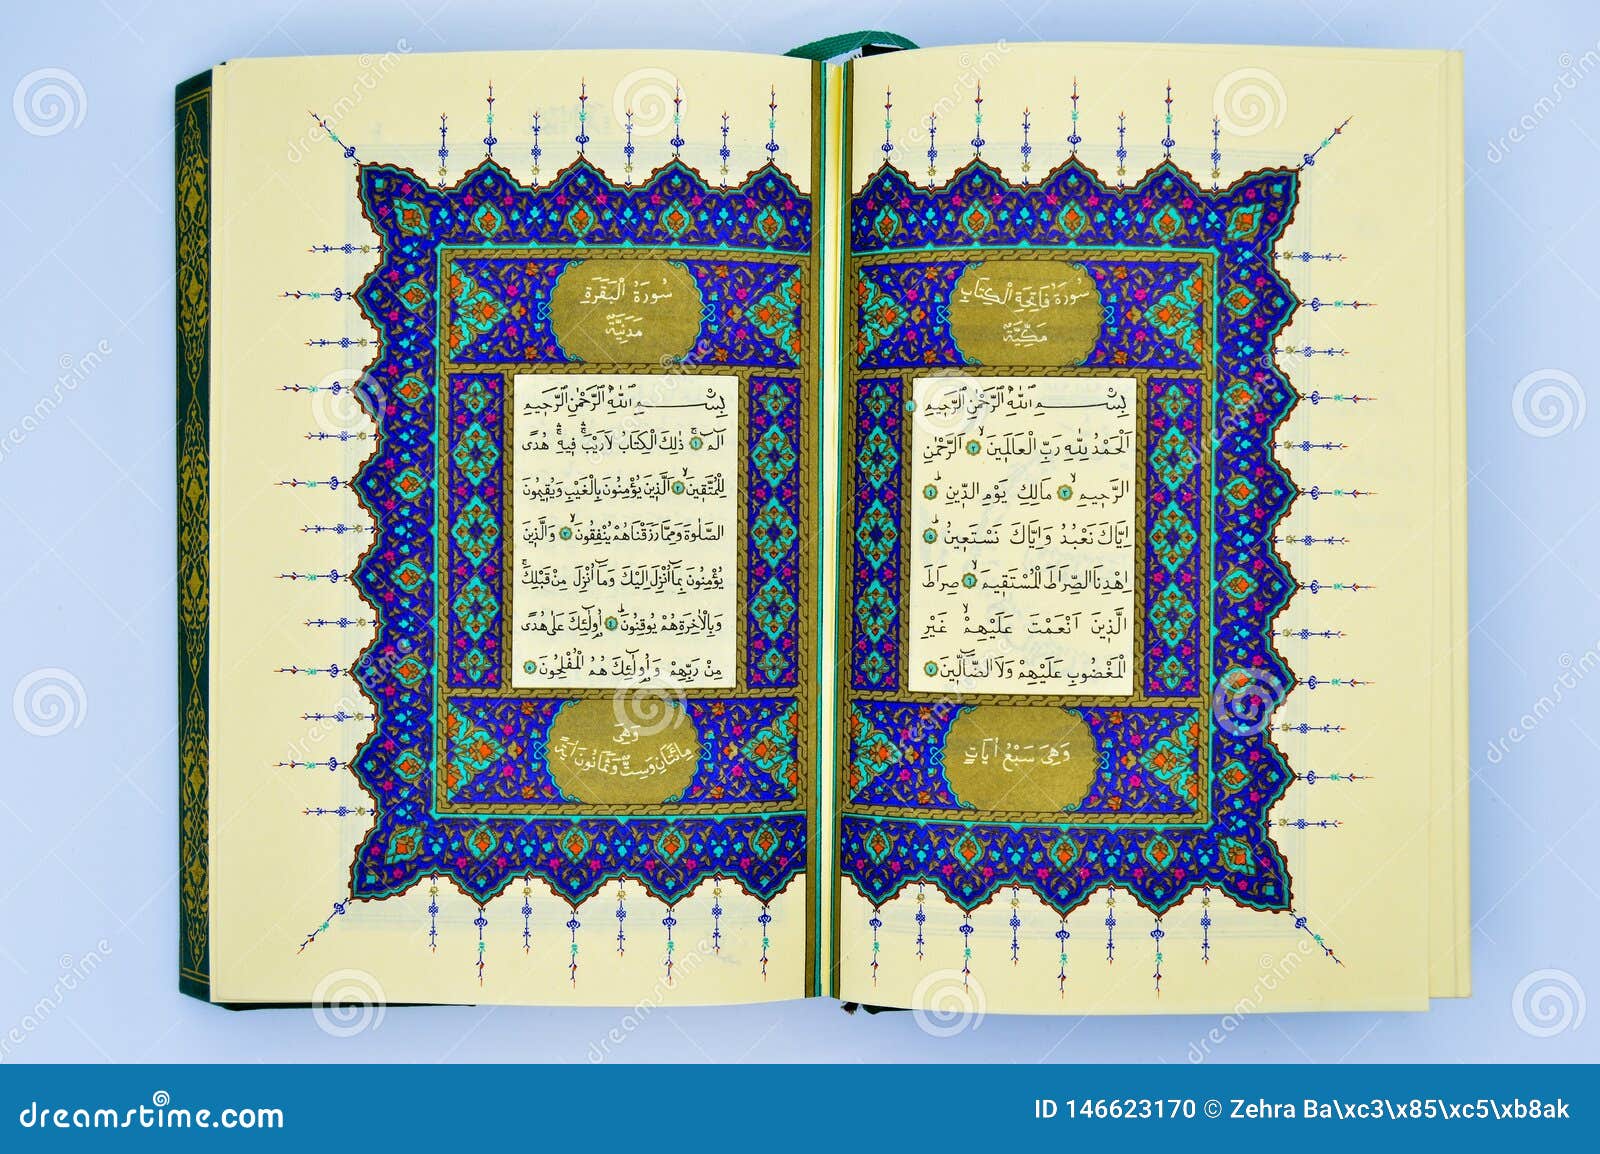 سُورَةُ فَاتِحَةِ الْكِتَابِ
مَكِّيَّةٌ
بِسْمِ اللّٰهِ الرَّحْمٰنِ الرَّحِيمِ ١
اَلْحَمْدُ لِلّٰهِ رَبِّ الْعَالَمِينَۙ ٢ اَلرَّحْمٰنِ
الرَّحِيمِۙ ٣ مَالِكِ يَوْمِ الدِّينِۜ ٤
اِيَّاكَ نَعْبُدُ وَاِيَّاكَ نَسْتَعِينُۜ ٥
اِهْدِنَا الصِّرَاطَ الْمُسْتَقِيمَۙ ٦ صِرَاطَ
الَّذِينَ اَنْعَمْتَ عَلَيْهِمْۙ غَيْرِ
الْمَغْضُوبِ عَلَيْهِمْ وَلَا الضَّٓالِّينَ ٧
وَهِيَ سَبْعُ اٰيَاتٍ
سُورَةُ الْبَقَرَةِ
مَدَنِيَّةٌ
بِسْمِ اللّٰهِ الرَّحْمٰنِ الرَّحِيمِ
الٓمٓۚ ١ ذٰلِكَ الْكِتَابُ لَا رَيْبَۚۛ فِيهِۚۛ هُدًى
لِلْمُتَّقِينَۙ ٢ اَلَّذِينَ يُؤْمِنُونَ بِالْغَيْبِ وَيُقِيمُونَ
الصَّلٰوةَ وَمِمَّا رَزَقْنَاهُمْ يُنْفِقُونَۙ ٣ وَالَّذِينَ
يُؤْمِنُونَ بِمَٓا اُنْزِلَ اِلَيْكَ وَمَٓا اُنْزِلَ مِنْ قَبْلِكَۚ
وَبِالْاٰخِرَةِ هُمْ يُوقِنُونَۜ ٤ اُو۬لٰٓئِكَ عَلٰى هُدًى
مِنْ رَبِّهِمْ وَاُو۬لٰٓئِكَ هُمُ الْمُفْلِحُونَ ٥
وَهِيَ
مِائَتَانِ وَسِتٌّ وَثَمَانُونَ اٰيَةً
dreamstime.com
ID 146623170 © Zehra Ba\xc3\x85\xc5\xb8ak